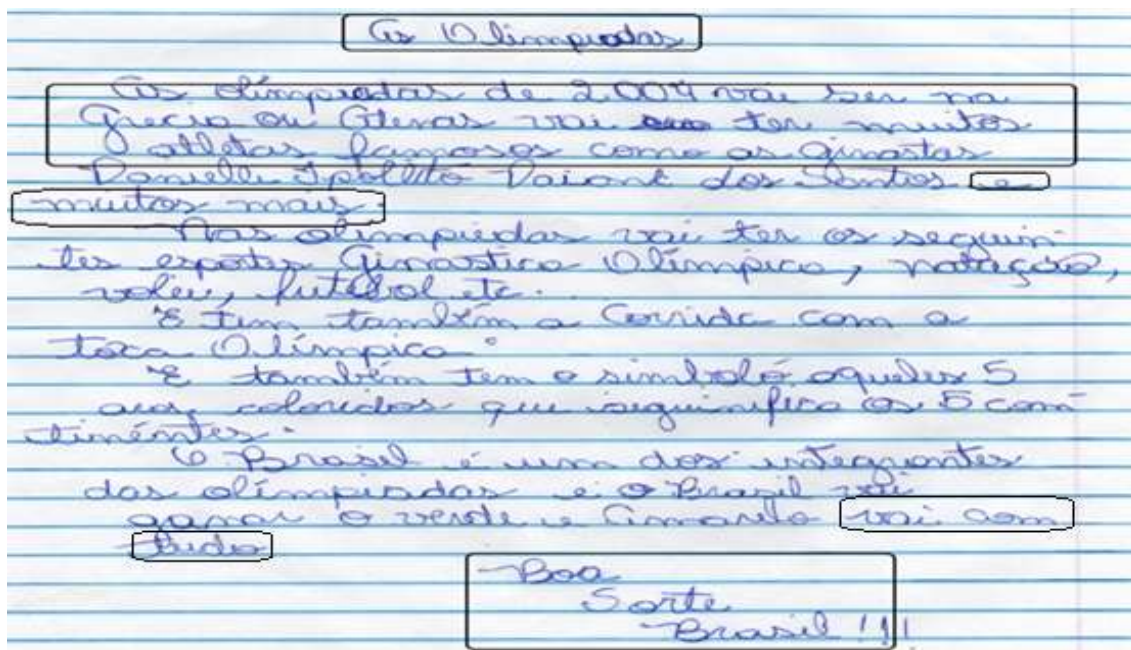 As Olimpiadas
As olímpiadas de 2.004 vai ser na
Grecia ou Atenas vai ter muitos
atletas famosos como as Ginastas
Danielle Ipolito Daiane dos Santos e
muitos mais.
Nas olimpiedas vai ter os seguin-
tes esportes Ginastica Olímpica, natação,
volei, futebol etc...
E tem também a Corrida com a
toca Olímpica.
E também tem o simbolo aqueles 5
aros coloridos que siguinifica os 5 com-
tinéntes.
O Brasil é um dos integrantes
das olímpiadas e o Brasil vai
ganar o verde e Amarelo vai com
tudo
Boa
Sorte
Brasil!!!